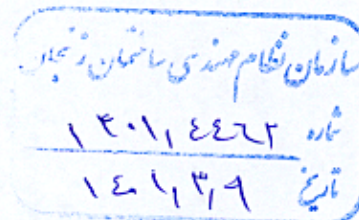 سازمان نظام مهندسی ساختمان زنجان
شماره ۱۴۰۱,۴۴۶۲
تاریخ ۱۴۰۱,۳,۹